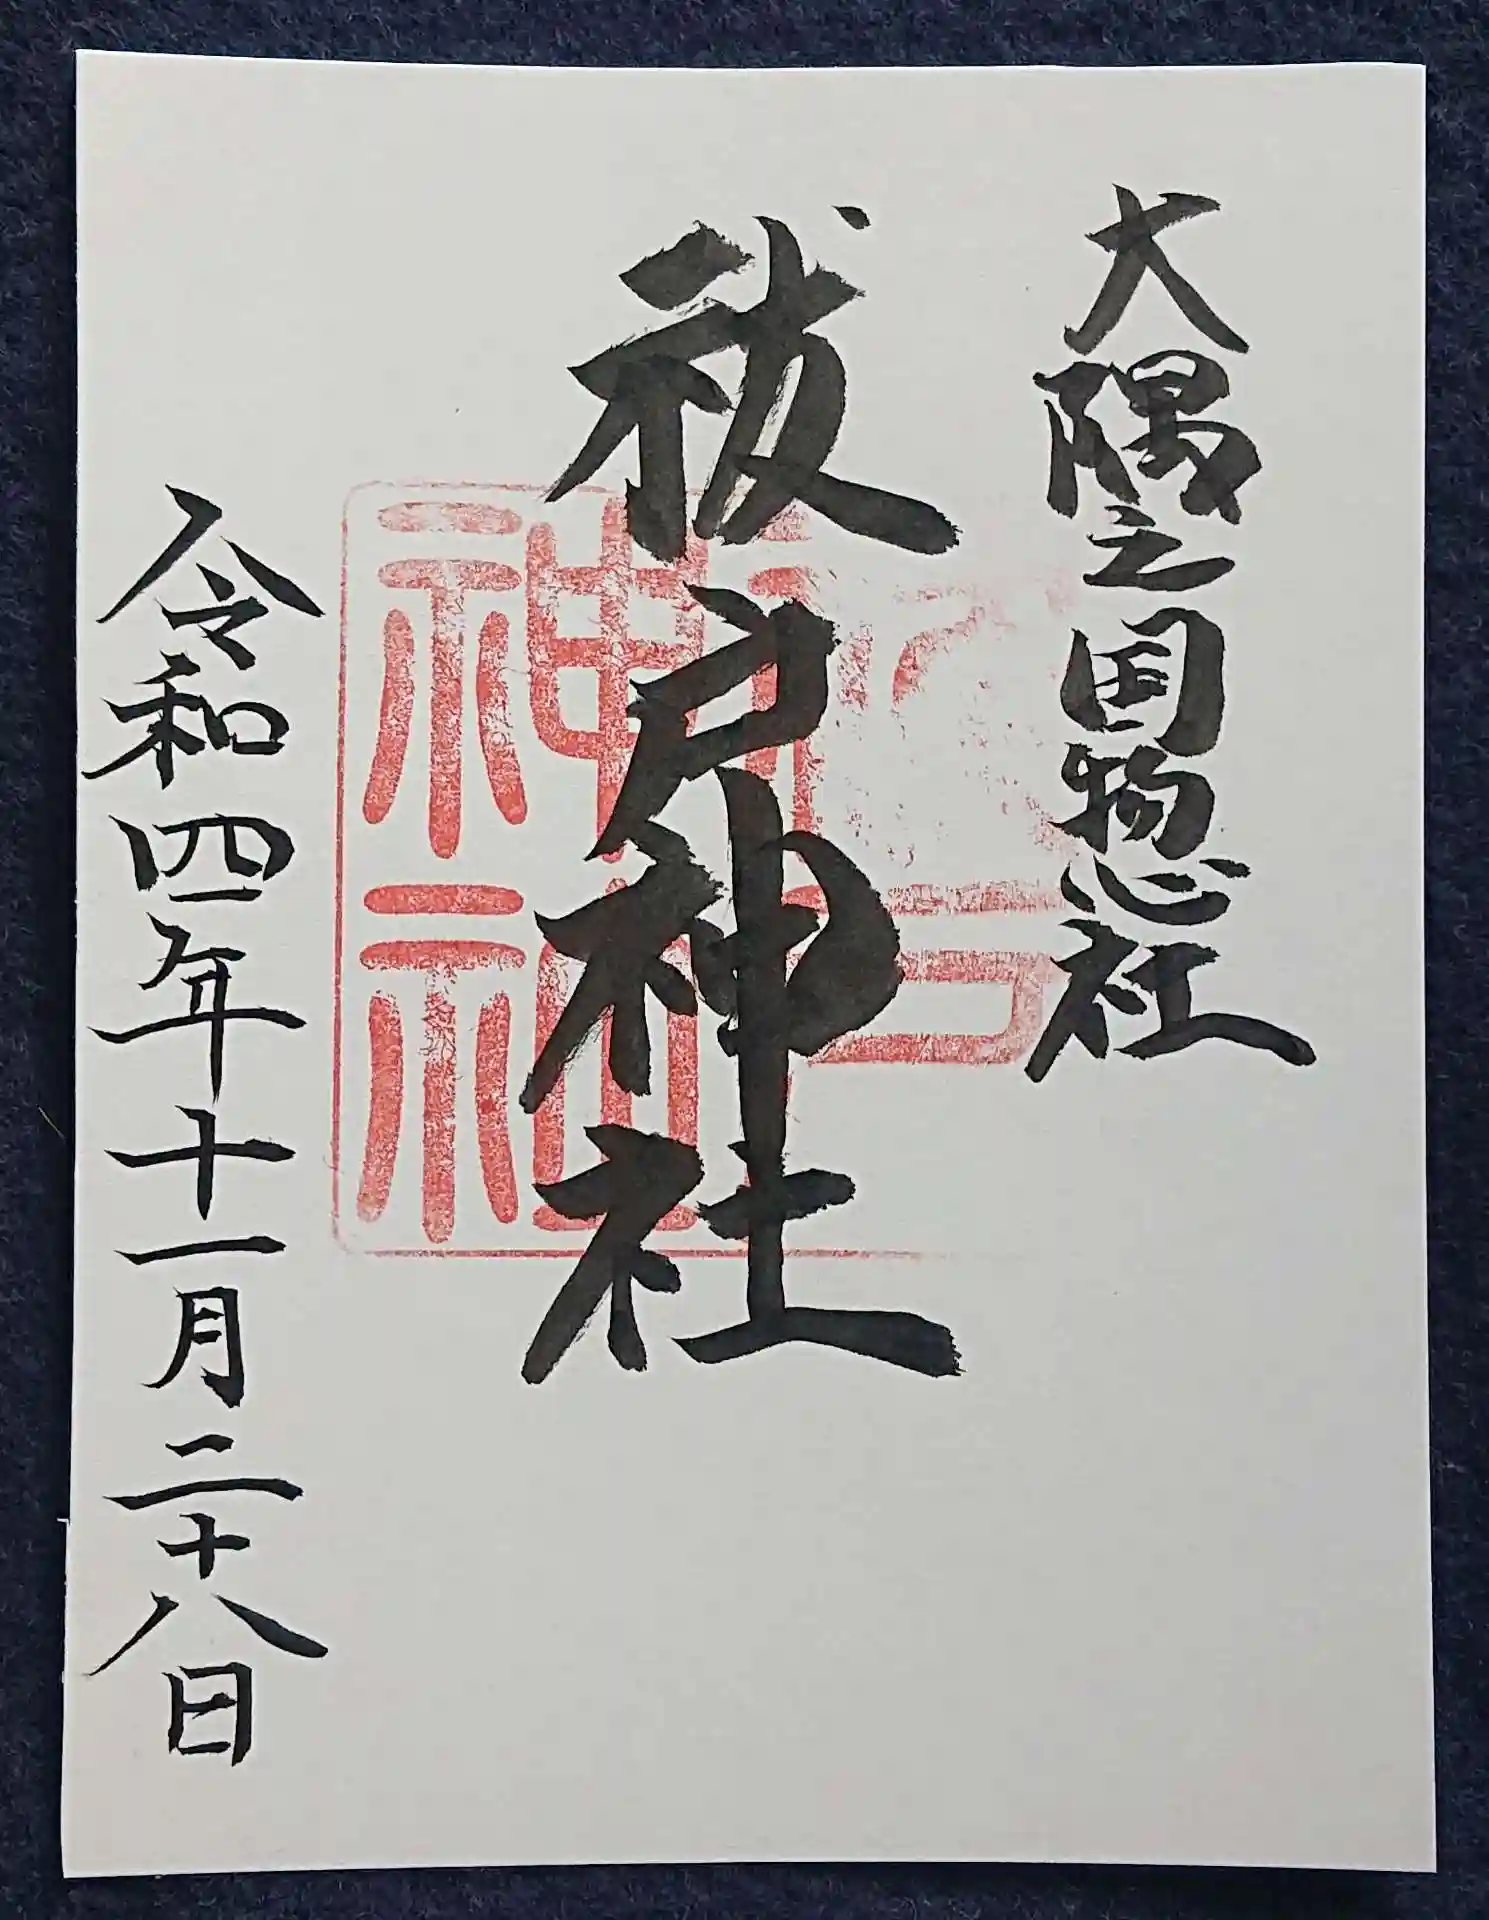 大隅之国惣社
祓戸神社
令和四年十一月二十八日
祓戸
神社